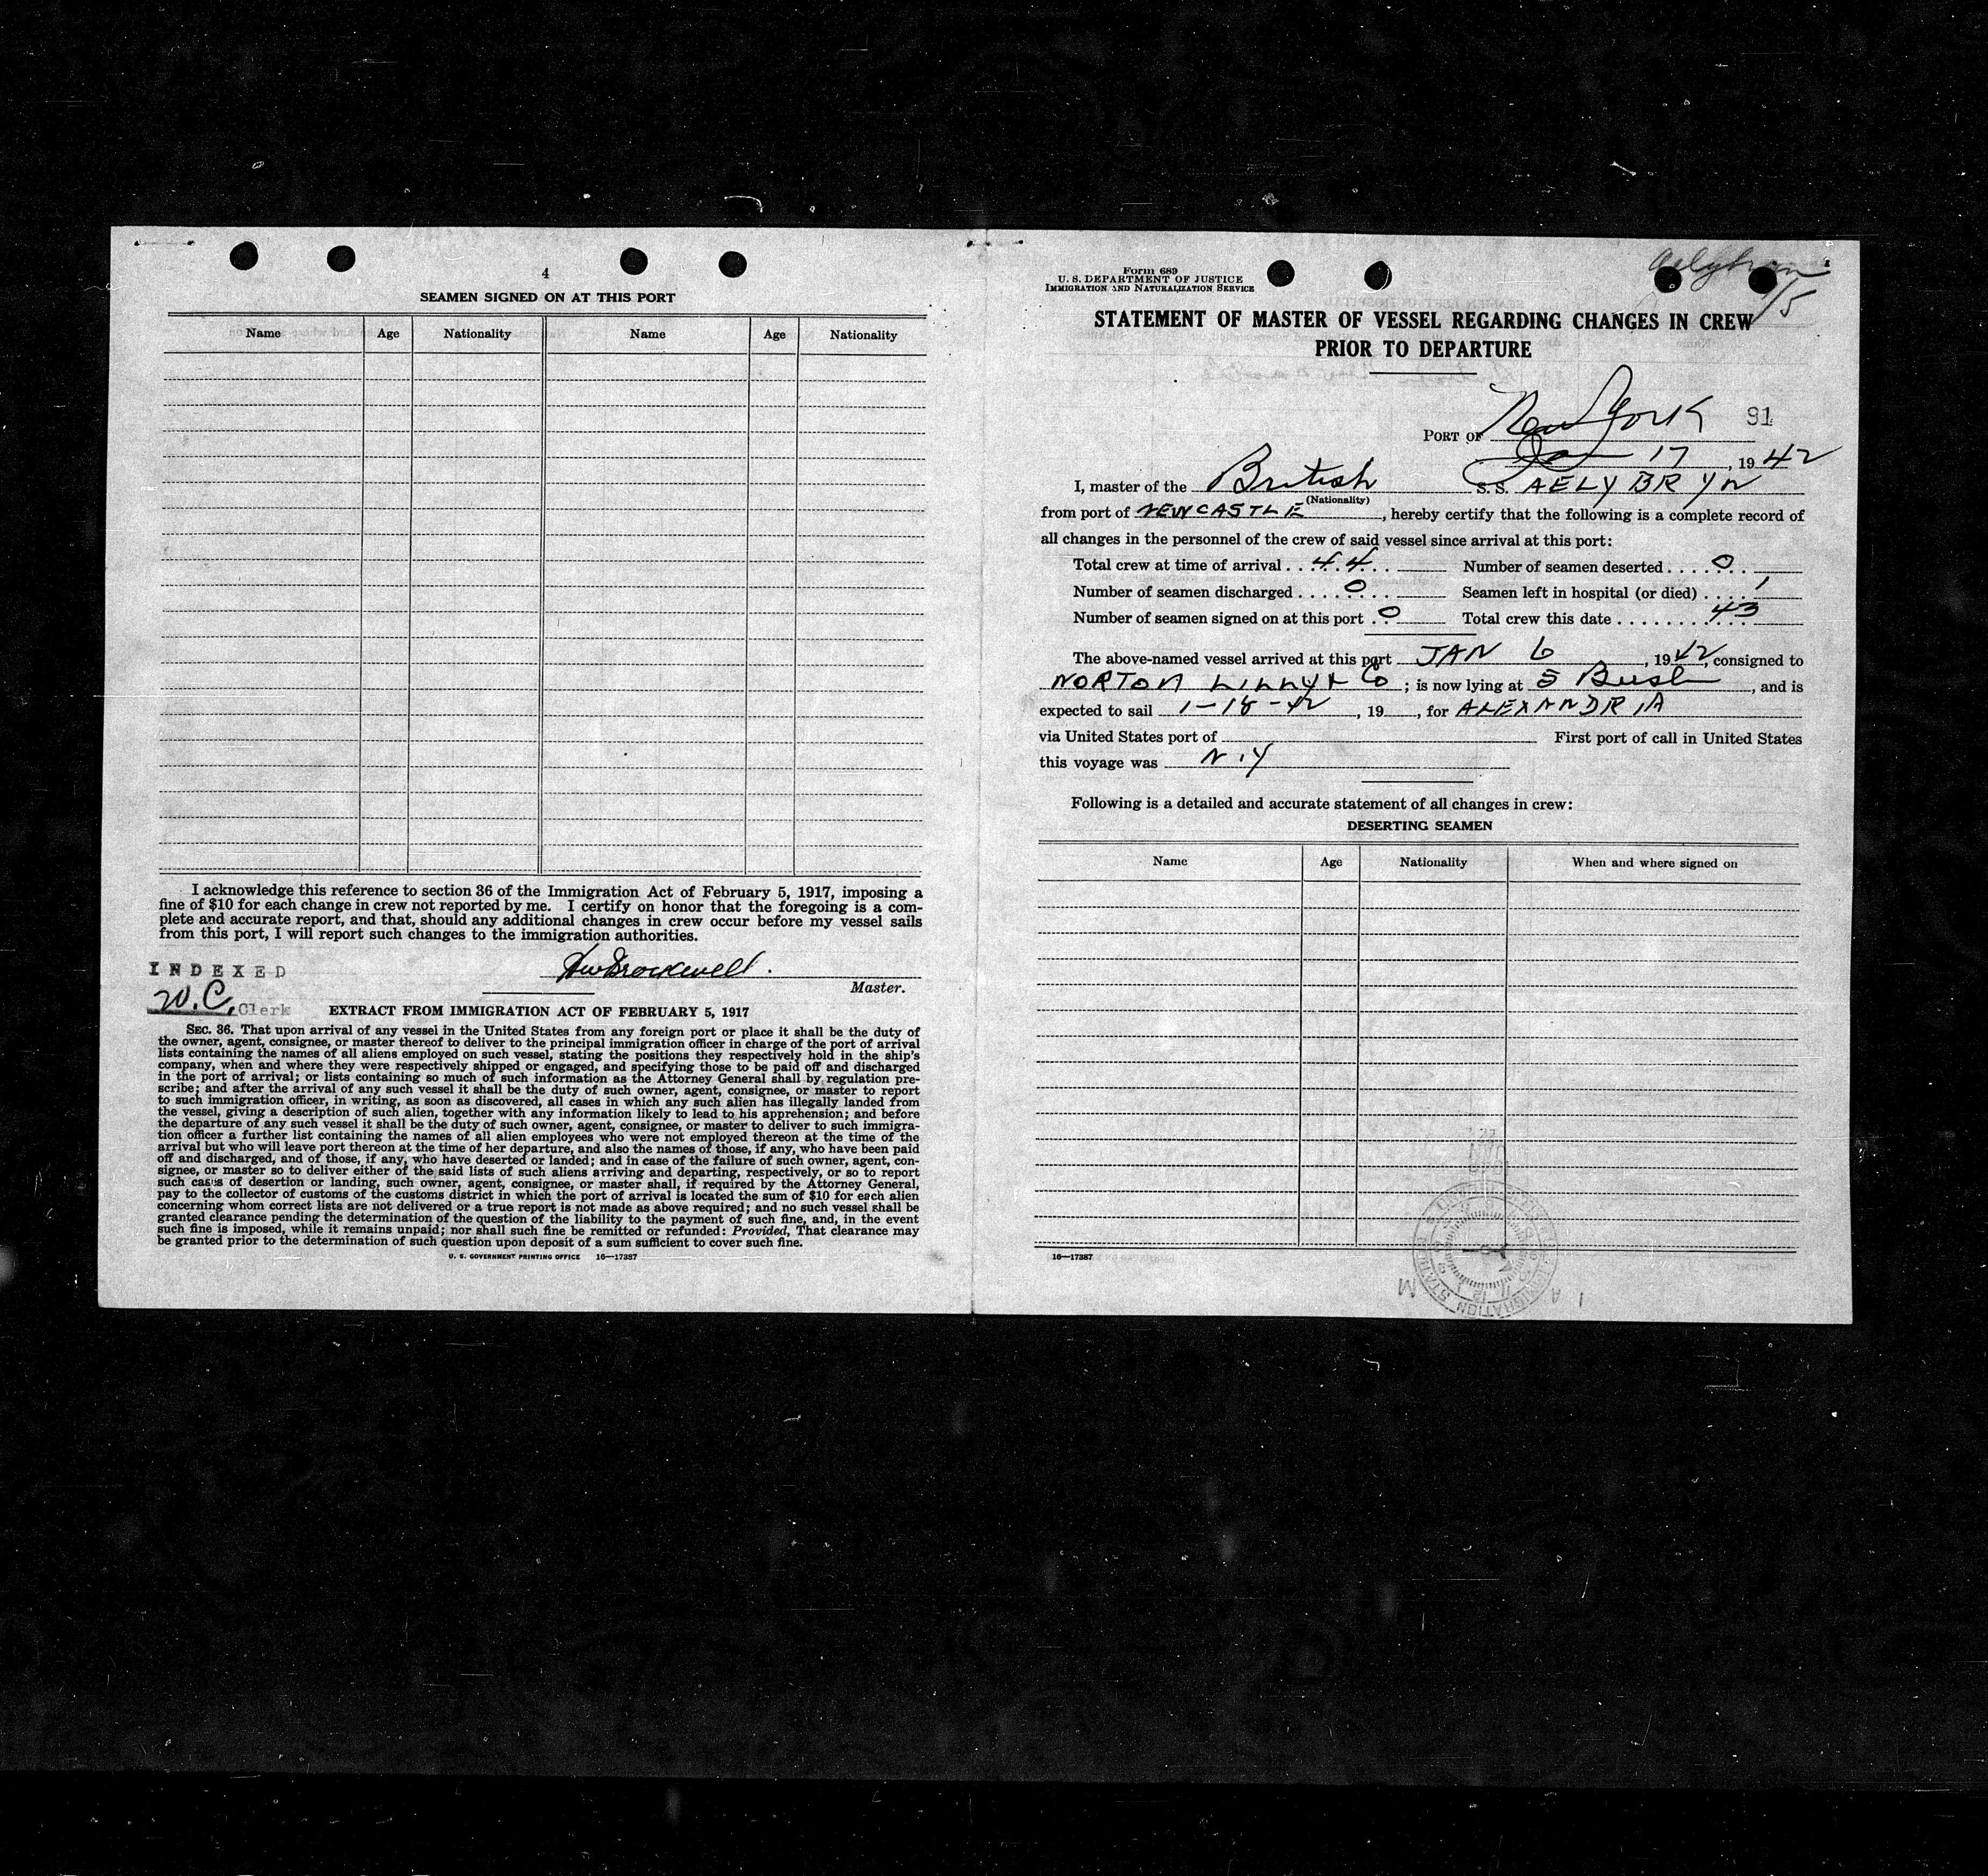 4
SEAMEN SIGNED ON AT THIS PORT
Name Age Nationality Name Age Nationality
I acknowledge this reference to section 36 of the Immigration Act of February 5, 1917, imposing a
fine of $10 for each change in crew not reported by me. I certify on honor that the foregoing is a com-
plete and accurate report, and that, should any additional changes in crew occur before my vessel sails
from this port, I will report such changes to the immigration authorities.
INDEXED
Master.
W.C. Clerk
EXTRACT FROM IMMIGRATION ACT OF FEBRUARY 5, 1917
SEC. 36. That upon arrival of any vessel in the United States from any foreign port or place it shall be the duty of
the owner, agent, consignee, or master thereof to deliver to the principal immigration officer in charge of the port of arrival
lists containing the names of all aliens employed on such vessel, stating the positions they respectively hold in the ship's
company, when and where they were respectively shipped or engaged, and specifying those to be paid off and discharged
in the port of arrival; or lists containing so much of such information as the Attorney General shall by regulation pre-
scribe; and after the arrival of any such vessel it shall be the duty of such owner, agent, consignee, or master to report
to such immigration officer, in writing, as soon as discovered, all cases in which any such alien has illegally landed from
the vessel, giving a description of such alien, together with any information likely to lead to his apprehension; and before
the departure of any such vessel it shall be the duty of such owner, agent, consignee, or master to deliver to such immigra-
tion officer a further list containing the names of all alien employees who were not employed thereon at the time of the
arrival but who will leave port thereon at the time of her departure, and also the names of those, if any, who have been paid
off and discharged, and of those, if any, who have deserted or landed; and in case of the failure of such owner, agent, con-
signee, or master so to deliver either of the said lists of such aliens arriving and departing, respectively, or so to report
such cases of desertion or landing, such owner, agent, consignee, or master shall, if required by the Attorney General,
pay to the collector of customs of the customs district in which the port of arrival is located the sum of $10 for each alien
concerning whom correct lists are not delivered or a true report is not made as above required; and no such vessel shall be
granted clearance pending the determination of the question of the liability to the payment of such fine, and, in the event
such fine is imposed, while it remains unpaid; nor shall such fine be remitted or refunded: Provided, That clearance may
be granted prior to the determination of such question upon deposit of a sum sufficient to cover such fine.
U. S. GOVERNMENT PRINTING OFFICE 16—17387
Form 689
U. S. DEPARTMENT OF JUSTICE
IMMIGRATION AND NATURALIZATION SERVICE
Aelybryn
1/5
STATEMENT OF MASTER OF VESSEL REGARDING CHANGES IN CREW
PRIOR TO DEPARTURE
PORT OF New York 91
Jan 17, 1942
I, master of the British S. S. AELYBRYN
(Nationality)
from port of NEWCASTLE, hereby certify that the following is a complete record of
all changes in the personnel of the crew of said vessel since arrival at this port:
Total crew at time of arrival . . 44 . . Number of seamen deserted . . . . 0 . .
Number of seamen discharged . . . . 0 . . . Seamen left in hospital (or died) . . . . 1
Number of seamen signed on at this port . 0 Total crew this date . . . . . . . . 43
The above-named vessel arrived at this port JAN 6, 1942, consigned to
NORTON LILLY & Co; is now lying at 5 Bush, and is
expected to sail 1-18-42, 19 , for ALEXANDRIA
via United States port of First port of call in United States
this voyage was N.Y
Following is a detailed and accurate statement of all changes in crew:
DESERTING SEAMEN
Name Age Nationality When and where signed on
16—17387